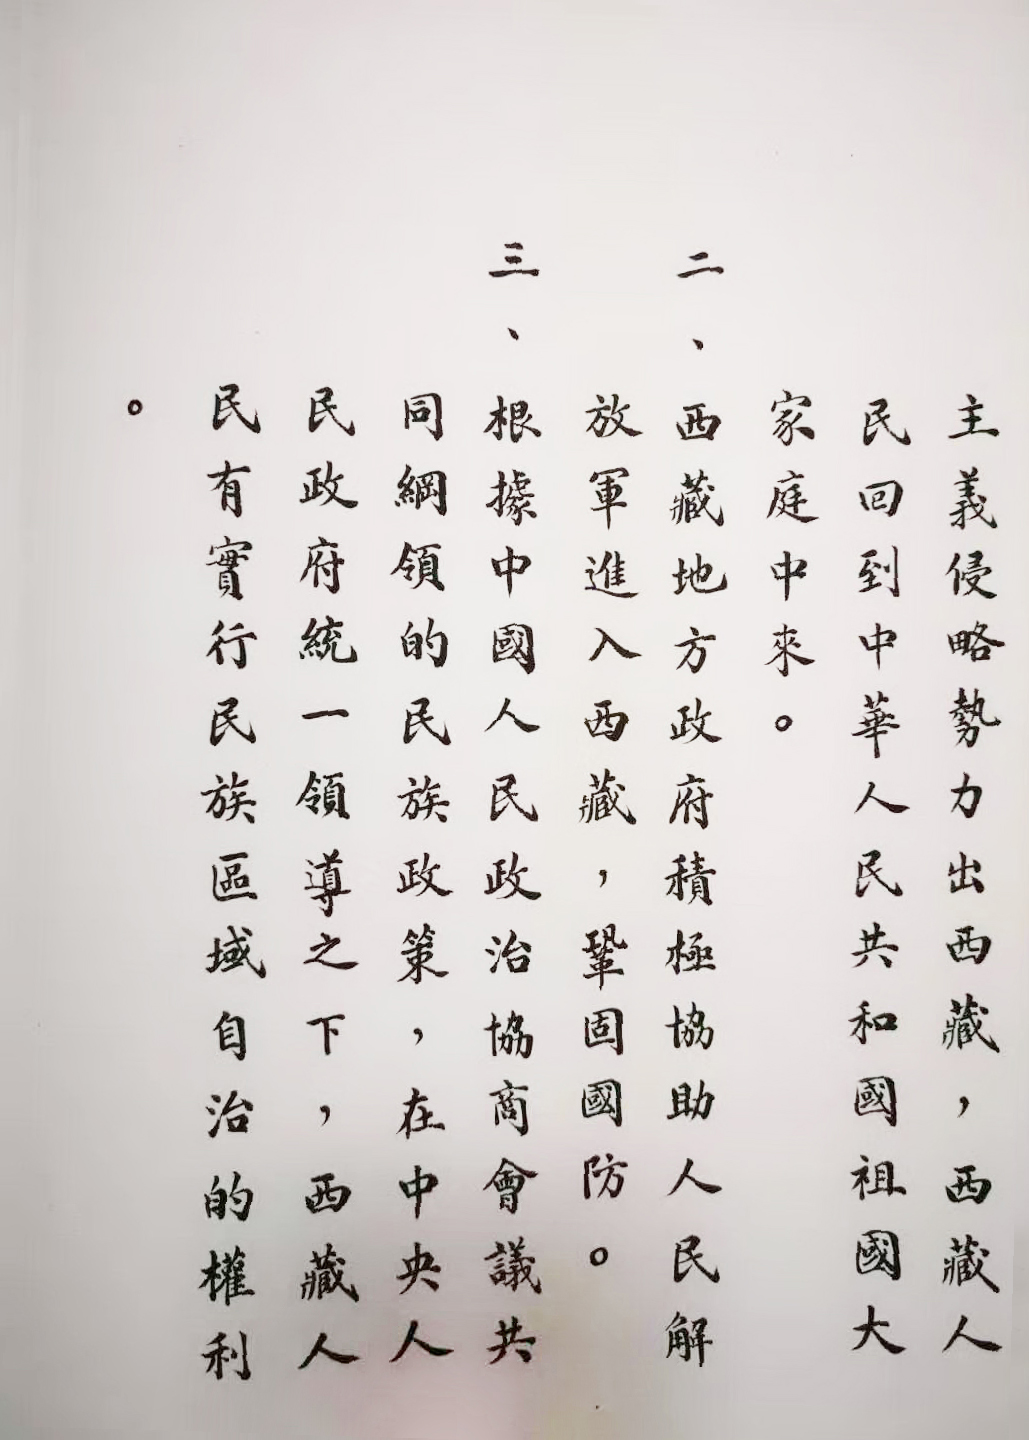 主義侵略勢力出西藏，西藏人
民回到中華人民共和國祖國大
家庭中來。
二、西藏地方政府積極協助人民解
放軍進入西藏，鞏固國防。
三、根據中國人民政治協商會議共
同綱領的民族政策，在中央人
民政府統一領導之下，西藏人
民有實行民族區域自治的權利
。